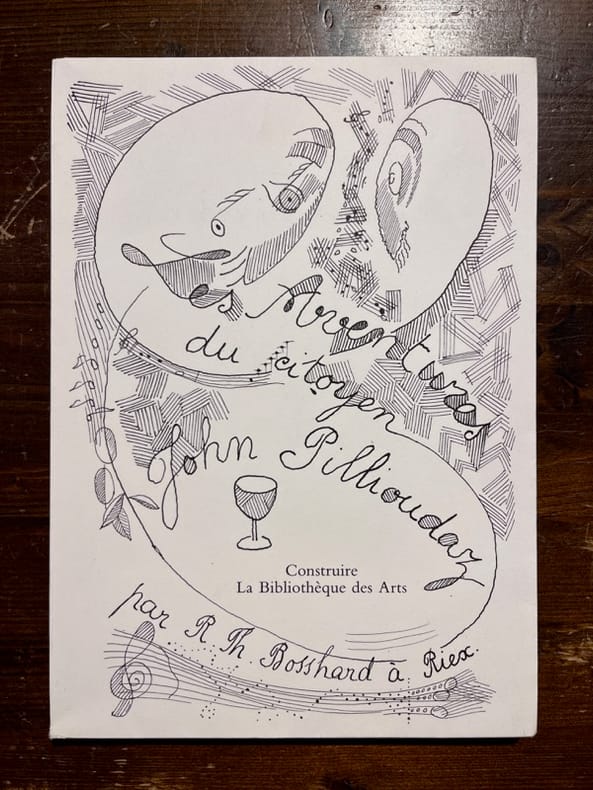 Les Aventures
du citoyen
John Pillioudaz
Construire
La Bibliothèque des Arts
par R Th. Bosshard à Riex.